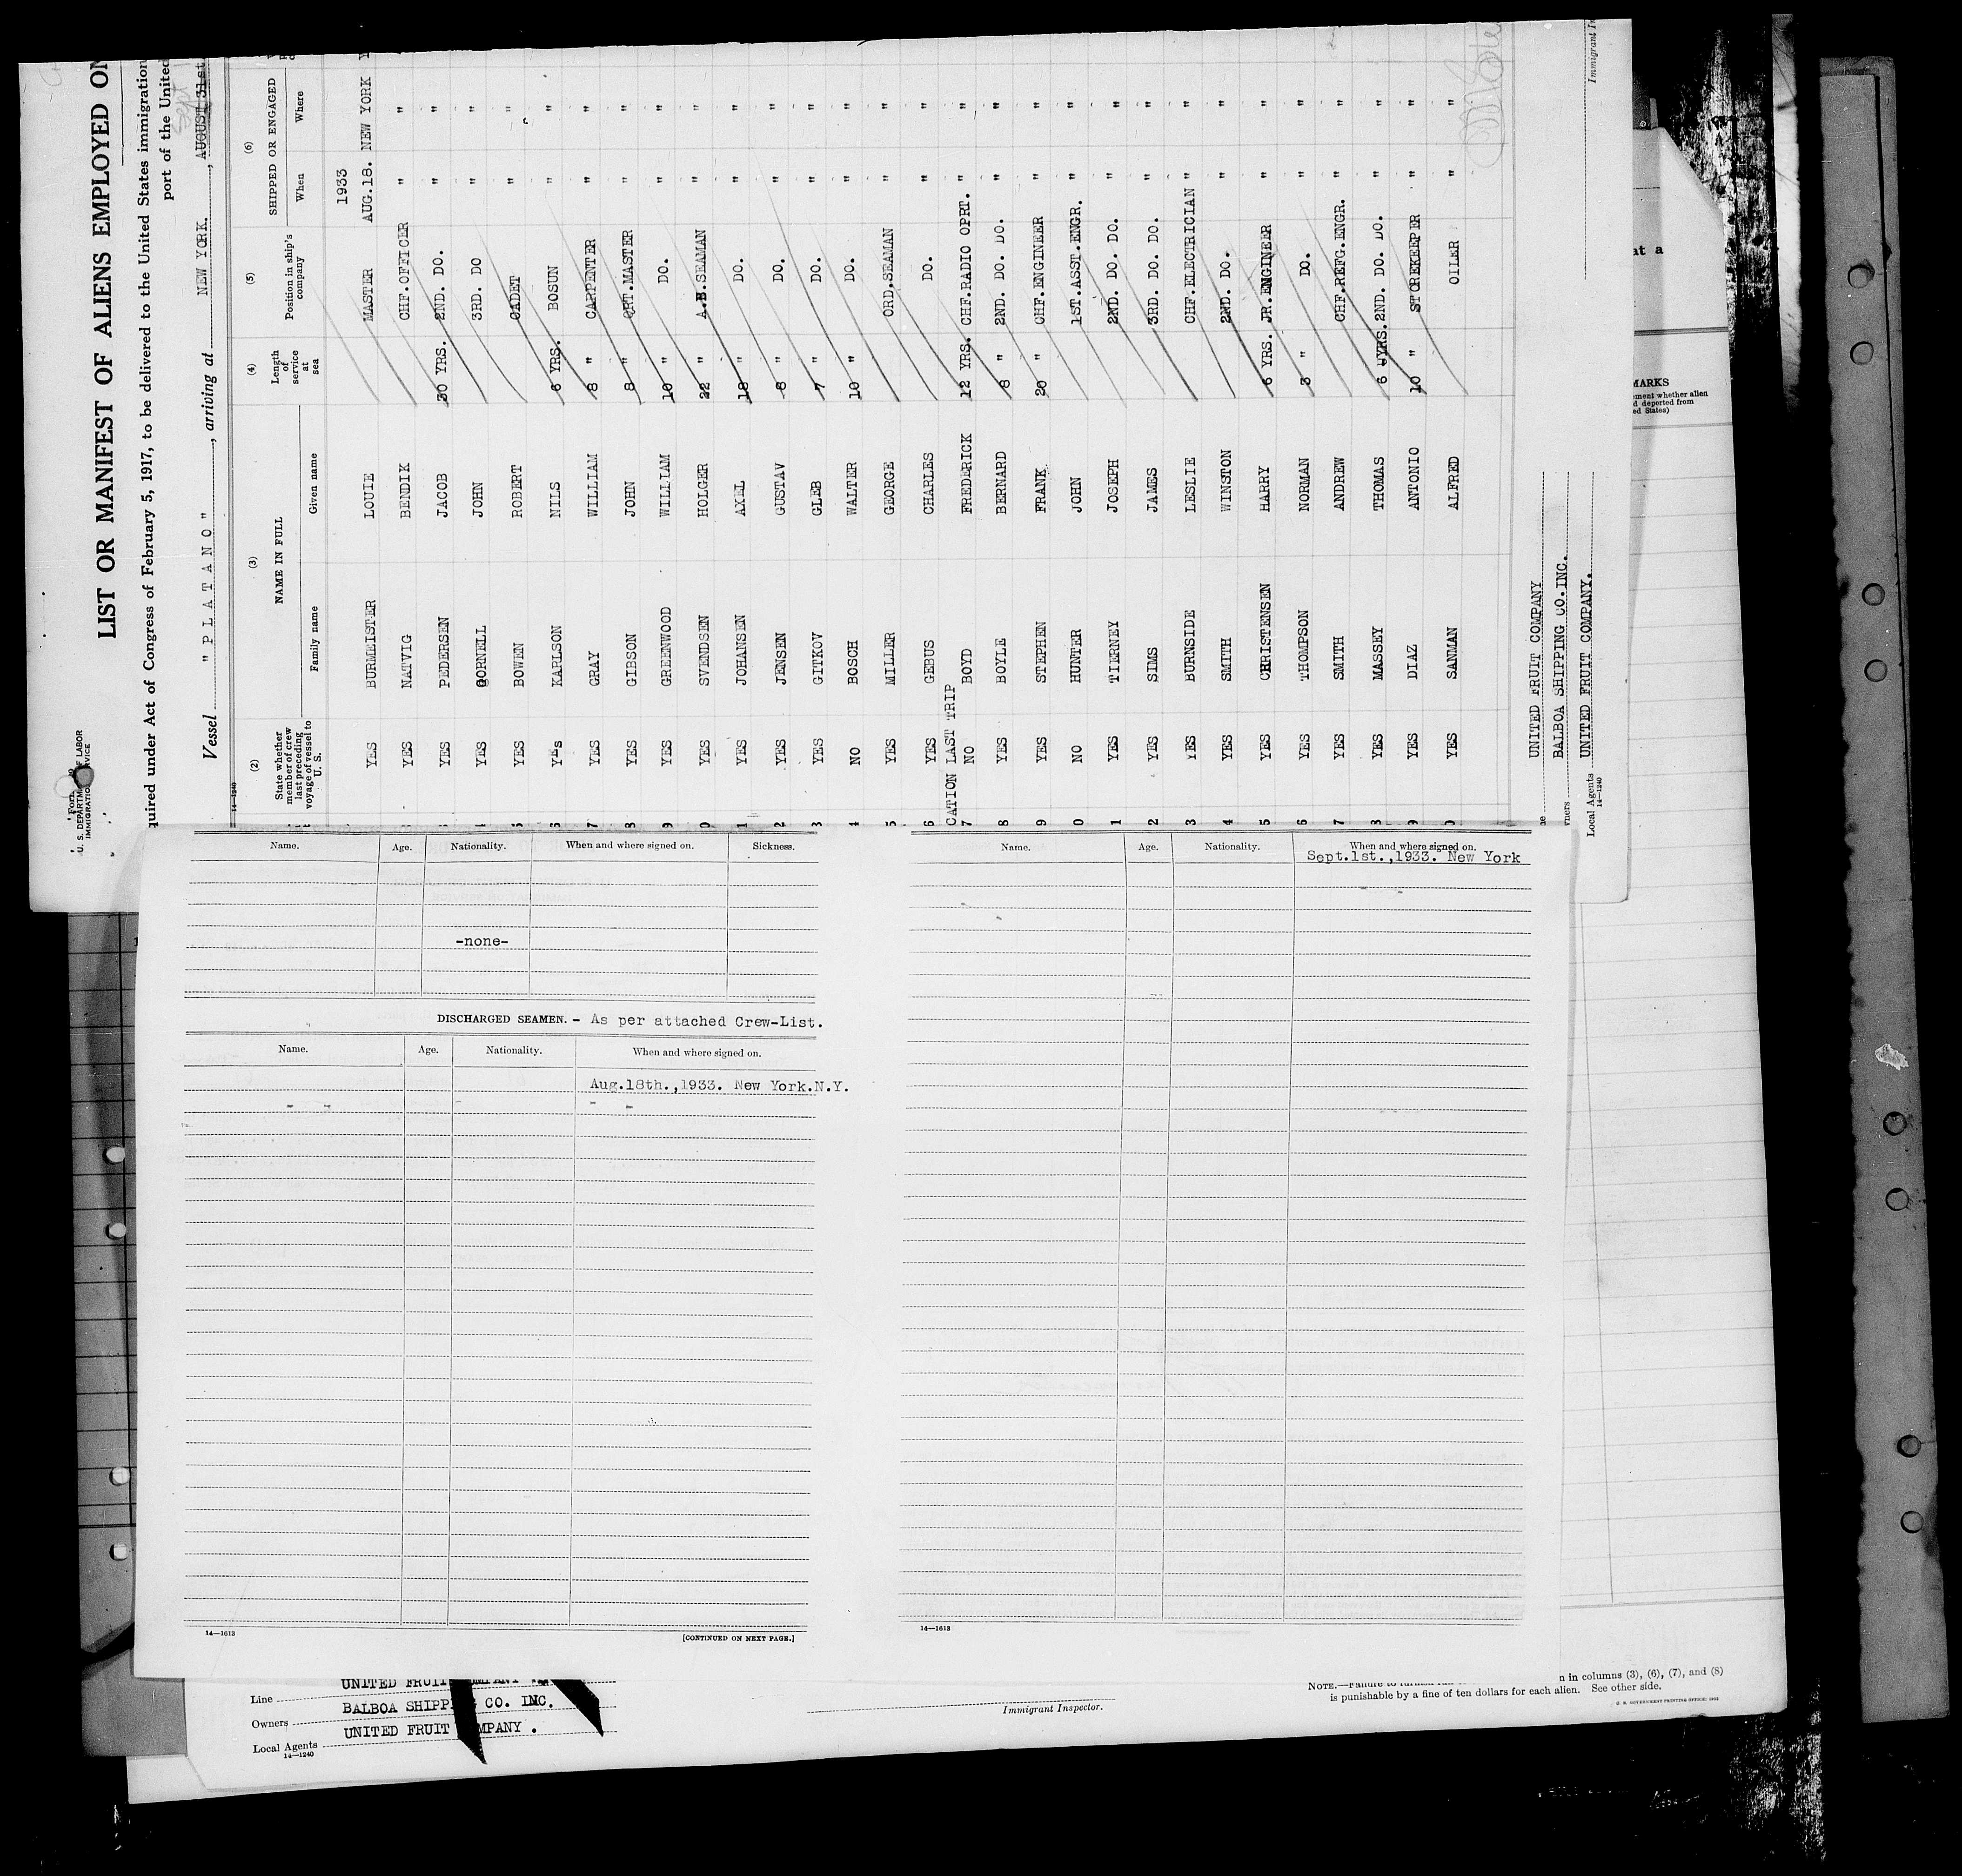 Form
U. S. DEPARTM OF LABOR
IMMIGRATIO VICE
LIST OR MANIFEST OF ALIENS EMPLOYED ON
quired under Act of Congress of February 5, 1917, to be delivered to the United States immigration
port of the United
Vessel "PLATANO", arriving at NEW YORK., AUGUST 31st
14—1240
(2) (3) (4) (5) (6)
State whether member of crew last preceding voyage of vessel to U. S. NAME IN FULL Length of service at sea Position in ship's company SHIPPED OR ENGAGED
Family name Given name When Where
1933
YES BURMEISTER LOUIE MASTER AUG.18. NEW YORK
YES NATVIG BENDIK CHF.OFFICER " "
YES PEDERSEN JACOB 30 YRS. 2ND. DO. " "
YES CORNELL JOHN 3RD. DO " "
5 YES BOWEN ROBERT CADET " "
6 YES KARLSON NILS 6 YRS. BOSUN " "
7 YES GRAY WILLIAM 8 " CARPENTER " "
8 YES GIBSON JOHN 8 " QRT.MASTER " "
9 YES GREENWOOD WILLIAM 10 " DO. " "
0 YES SVENDSEN HOLGER 22 " A.B.SEAMAN " "
1 YES JOHANSEN AXEL 18 " DO. " "
2 YES JENSEN GUSTAV 8 " DO. " "
3 YES GITKOV GLEB 7 " DO. " "
4 NO BOSCH WALTER 10 " DO. " "
5 YES MILLER GEORGE ORD.SEAMAN " "
6 YES GEBUS CHARLES DO. " "
CATION LAST TRIP
7 NO BOYD FREDERICK 12 YRS. CHF.RADIO OPRT. " "
8 YES BOYLE BERNARD 8 " 2ND. DO. DO. " "
9 YES STEPHEN FRANK 20 " CHF.ENGINEER " "
0 NO HUNTER JOHN 1ST.ASST.ENGR. " "
1 YES TIERNEY JOSEPH 2ND. DO. DO. " "
2 YES SIMS JAMES 3RD. DO. DO. " "
3 YES BURNSIDE LESLIE CHF.ELECTRICIAN " "
4 YES SMITH WINSTON 2ND. DO. " "
5 YES CHRISTENSEN HARRY 6 YRS. JR.ENGINEER " "
6 YES THOMPSON NORMAN 3 " DO. " "
7 YES SMITH ANDREW CHF.REFG.ENGR. " "
8 YES MASSEY THOMAS 6 YRS. 2ND. DO. DO. " "
9 YES DIAZ ANTONIO 10 " STOREKEEPER " "
0 YES SANMAN ALFRED OILER " "
ne UNITED FRUIT COMPANY
wners BALBOA SHIPPING CO.INC.
Local Agents UNITED FRUIT COMPANY.
14—1240
Immigrant In
at a
MARKS
ement whether alien
d deported from
ed States)
Name. Age. Nationality. When and where signed on. Sickness.
-none-
DISCHARGED SEAMEN. - As per attached Crew-List.
Name. Age. Nationality. When and where signed on.
Aug.18th.,1933. New York.N.Y.
14—1613
[CONTINUED ON NEXT PAGE.]
Name. Age. Nationality. When and where signed on.
Sept.1st.,1933. New York
14—1613
Line UNITED FRUIT OMPANY
Owners BALBOA SHIPPI CO. INC.
Local Agents UNITED FRUIT MPANY .
14—1240
Immigrant Inspector.
NOTE.—Failure to furnish n in columns (3), (6), (7), and (8)
is punishable by a fine of ten dollars for each alien. See other side.
U. S. GOVERNMENT PRINTING OFFICE: 1932